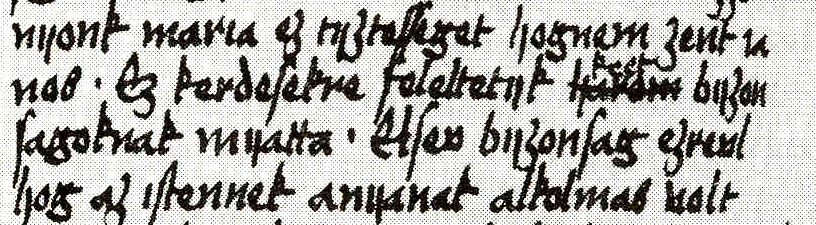 nyonk maria eʒ tyʒteſſeget hognem ʒent ia
nos · Eʒ kerdeſekre feleltetyk ket byʒon
ſagoknak myatta · Elſew byʒonſag eʒrewl
hog aʒ iſtennek anyanak alkolmas volt